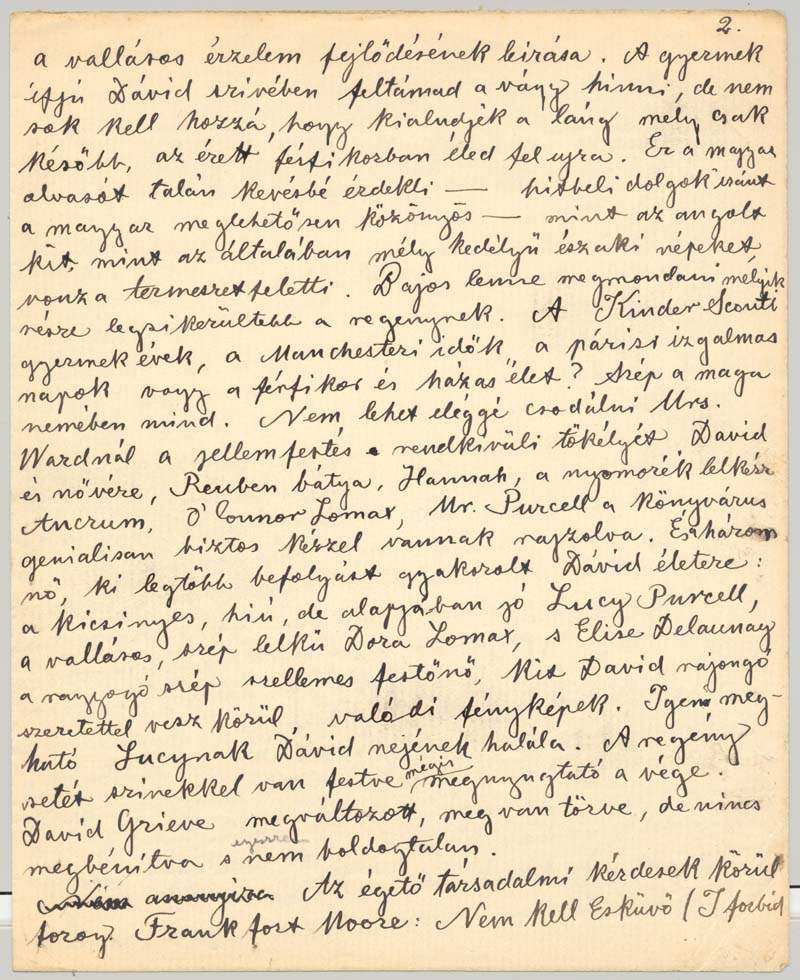 2.
a vallásos érzelem fejlődésének leirása. A gyermek
ifjú Dávid szivében feltámad a vágy hinni, de nem
sok kell hozzá, hogy kialudjék a láng mely csak
később, az érett férfikorban éled fel ujra. Ez a magyar
olvasót talán kevésbé érdekli — hitbeli dolgok iránt
a magyar meglehetősen közönyös — mint az angolt
kit, mint az általában mély kedélyű északi népeket
vonz a termeszetfeletti. Bajos lenne megmondani mélyik
része legsikerültebb a regénynek. A Kinder Scouti
gyermek évek, a Manchesteri idők a párisi izgalmas
napok vagy a férfikor és házas élet? Szép a maga
nemében mind. Nem lehet eléggé csodálni Mrs.
Wardnál a jellemfestés rendkivüli tökélyét David
és nővére, Reuben bátya, Hannah, a nyomorék lelkész
Ancrum, O'Connor Lomax, Mr. Purcell a könyvárus
genialisan biztos kézzel vannak rajzolva. És három
nő, ki legtöbb befolyást gyakorolt Dávid életere:
a kicsinyes, hiú, de alapjában jó Lucy Purcell,
a vallásos, szép lelkü Dora Lomax, s Elise Delaunay
a ragyogó szép szellemes festőnő, kit David rajongó
szeretettel vesz körül, valódi fényképek. Igen meg-
ható Lucynak Dávid nejének halála. A regény
setét szinekkel van festve mégis megnyugtató a vége.
David Grieve megváltozott, meg van törve, de nincs
megbénitva s nem boldogtalan.
Az égető társadalmi kérdesek körül
forog Frankfort Moore: Nem kell Esküvő (I forbid